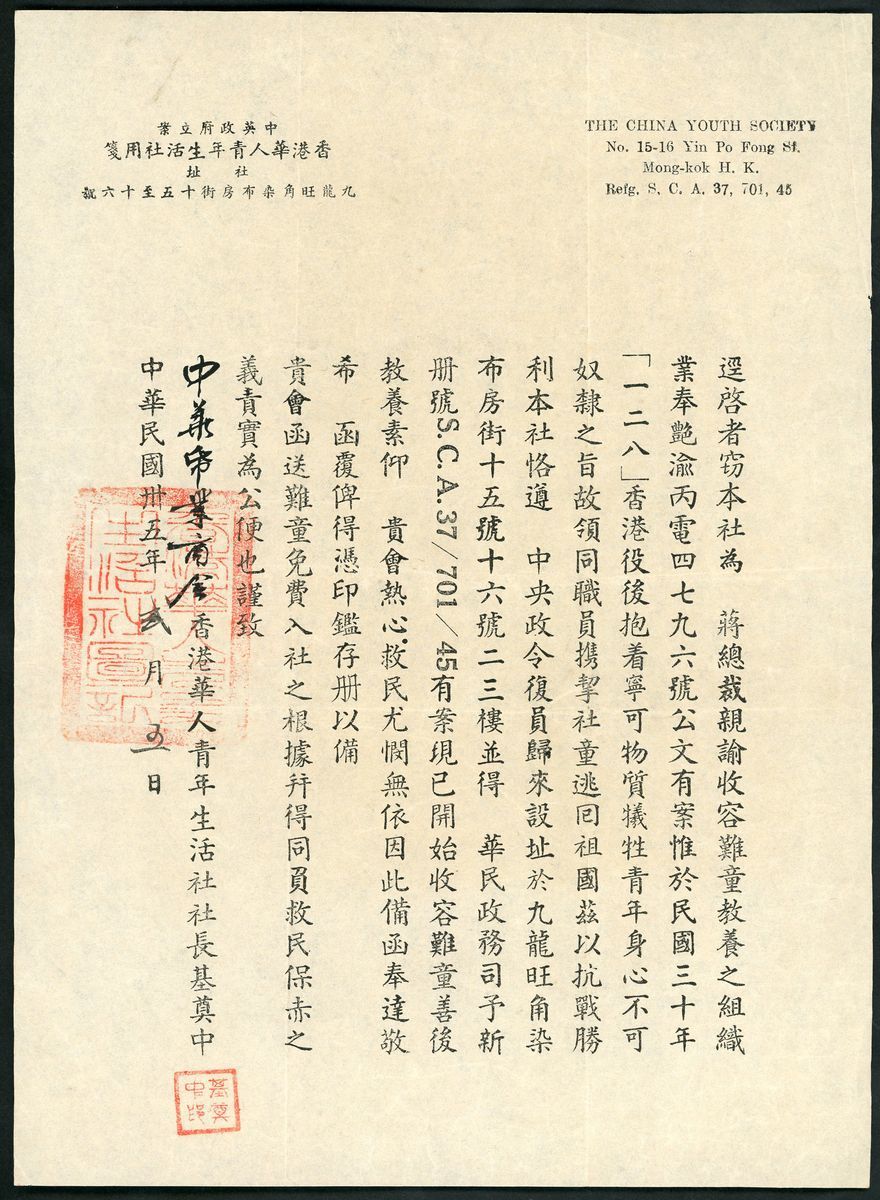 中英政府立案
香港華人青年生活社用箋
社址
九龍旺角染布房街十五至十六號
THE CHINA YOUTH SOCIETY
No. 15-16 Yin Po Fong St.
Mong-kok H. K.
Refg. S. C. A. 37, 701, 45
逕啓者窃本社為 蔣總裁親諭收容難童教養之組織
業奉艷渝丙電四七九六號公文有案惟於民國三十年
「一二八」香港役後抱着寧可物質犧牲青年身心不可
奴隸之旨故領同職員携挈社童逃囘祖國茲以抗戰勝
利本社恪遵 中央政令復員歸來設址於九龍旺角染
布房街十五號十六號二三樓並得 華民政務司予新
册號S.C.A.37/701/45有案現已開始收容難童善後
教養素仰 貴會熱心救民尤憫無依因此備函奉達敬
希 函覆俾得憑印鑑存册以備
貴會函送難童免費入社之根據幷得同負救民保赤之
義責實為公便也謹致
中華帋業商會
香港華人青年生活社社長基奠中
中華民國卅五年 弍月 五日
香港華人青年生活社圖記
基奠中印